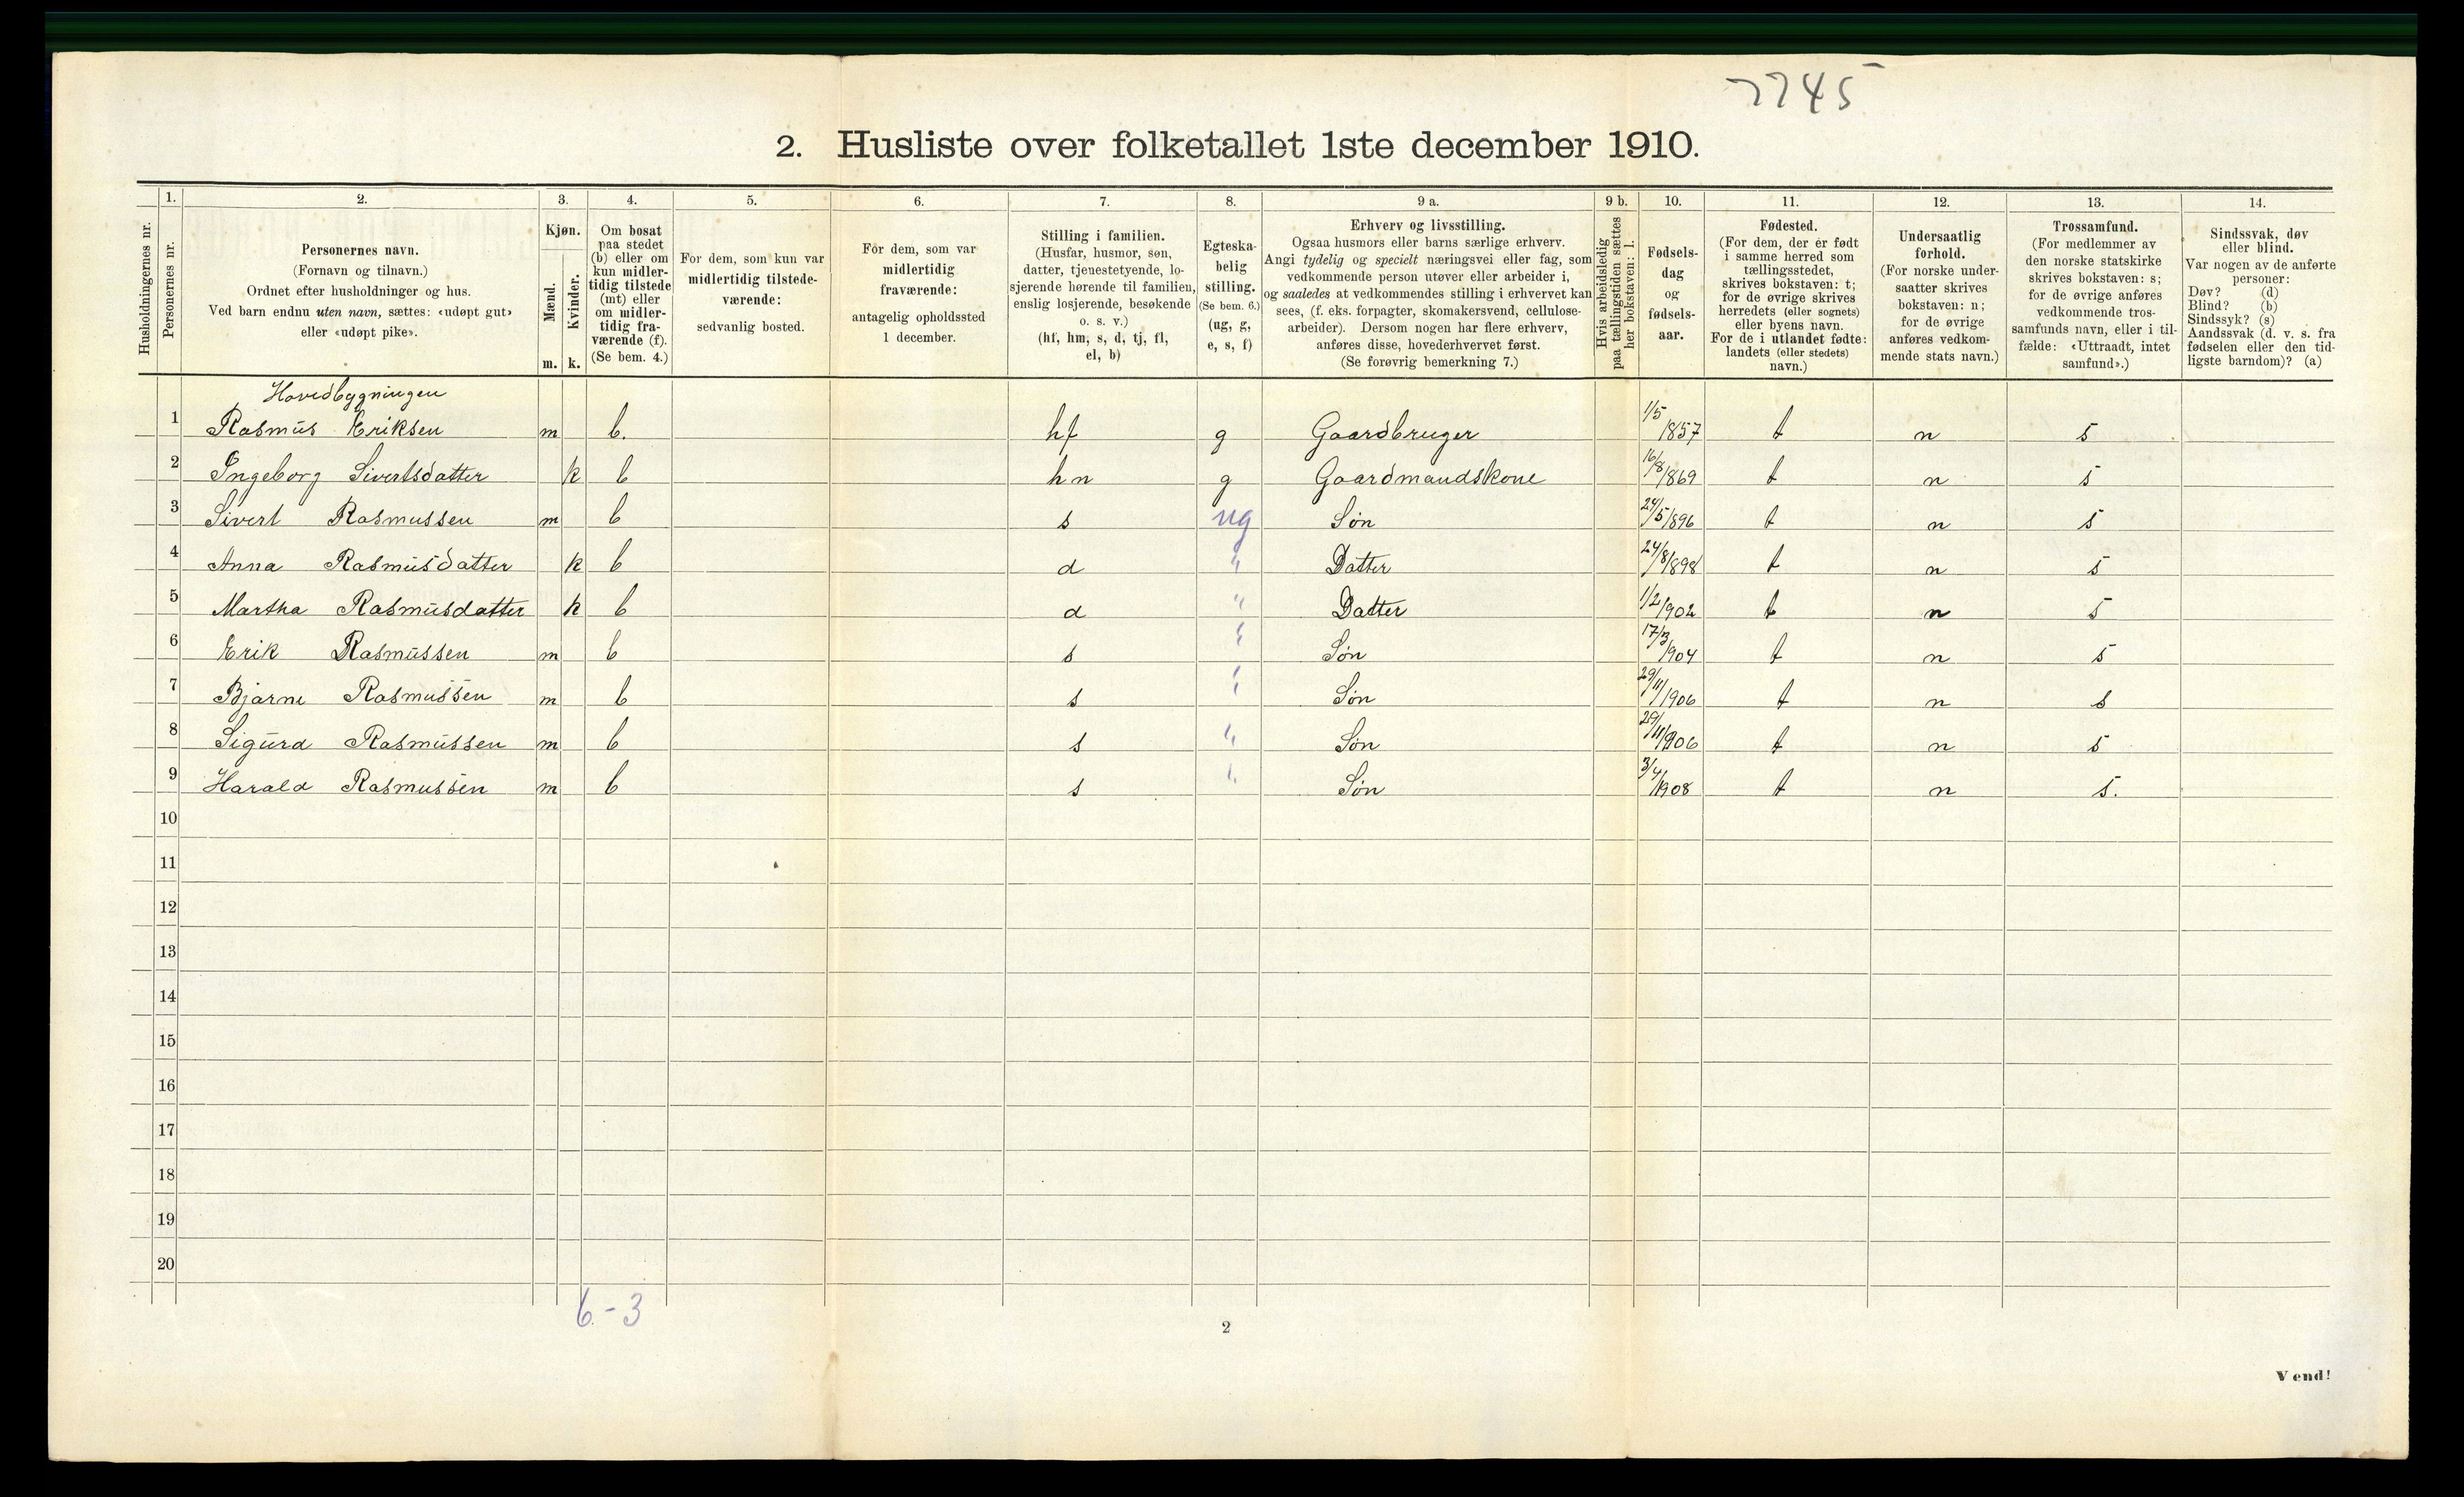 7745
2. Husliste over folketallet 1ste december 1910.
Husholdningernes nr.
1.
Personernes nr.
2.
Personernes navn.
(Fornavn og tilnavn.)
Ordnet efter husholdninger og hus.
Ved barn endnu uten navn, sættes: «udøpt gut»
eller «udøpt pike».
3.
Kjøn.
Mænd.
m.
Kvinder.
k.
4.
Om bosat
paa stedet
(b) eller om
kun midler-
tidig tilstede
(mt) eller
om midler-
tidig fra-
værende (f).
(Se bem. 4.)
5.
For dem, som kun var
midlertidig tilstede-
værende:
sedvanlig bosted.
6.
For dem, som var
midlertidig
fraværende:
antagelig opholdssted
1 december.
7.
Stilling i familien.
(Husfar, husmor, søn,
datter, tjenestetyende, lo-
sjerende hørende til familien,
enslig losjerende, besøkende
o. s. v.)
(hf, hm, s, d, tj, fl,
el, b)
8.
Egteska-
belig
stilling.
(Se bem. 6.)
(ug, g,
e, s, f)
9 a.
Erhverv og livsstilling.
Ogsaa husmors eller barns særlige erhverv.
Angi tydelig og specielt næringsvei eller fag, som
vedkommende person utøver eller arbeider i,
og saaledes at vedkommendes stilling i erhvervet kan
sees, (f. eks. forpagter, skomakersvend, cellulose-
arbeider). Dersom nogen har flere erhverv,
anføres disse, hovederhvervet først.
(Se forøvrig bemerkning 7.)
9 b.
Hvis arbeidsledig
paa tællingstiden sættes
her bokstaven: l.
10.
Fødsels-
dag
og
fødsels-
aar.
11.
Fødested.
(For dem, der er født
i samme herred som
tællingsstedet,
skrives bokstaven: t;
for de øvrige skrives
herredets (eller sognets)
eller byens navn.
For de i utlandet fødte:
landets (eller stedets)
navn.)
12.
Undersaatlig
forhold.
(For norske under-
saatter skrives
bokstaven: n;
for de øvrige
anføres vedkom-
mende stats navn.)
13.
Trossamfund.
(For medlemmer av
den norske statskirke
skrives bokstaven: s;
for de øvrige anføres
vedkommende tros-
samfunds navn, eller i til-
fælde: «Uttraadt, intet
samfund».)
14.
Sindssvak, døv
eller blind.
Var nogen av de anførte
personer:
Døv? (d)
Blind? (b)
Sindssyk? (s)
Aandssvak (d. v. s. fra
fødselen eller den tid-
ligste barndom)? (a)
Hovedbygningen
1 Rasmus Eriksen m b. hf g Gaardbruger 1/5 1857 t n s
2 Ingeborg Sivertsdatter k b hn g Gaardmandskone 16/8/869 t n s
3 Sivert Rasmussen m b s ug Søn 24/5/896 t n s
4 Anna Rasmusdatter k b d " Datter 24/8/898 t n s
5 Martha Rasmusdatter k b d " Datter 1/2/902 t n s
6 Erik Rasmussen m b s " Søn 17/3/904 t n s
7 Bjarne Rasmussen m b s " Søn 29/11/1906 t n s
8 Sigurd Rasmussen m b s " Søn 29/11/906 t n s
9 Harald Rasmussen m b s " Søn 3/4/1908 t n s.
10
11
12
13
14
15
16
17
18
19
20
6-3
2
Vend!